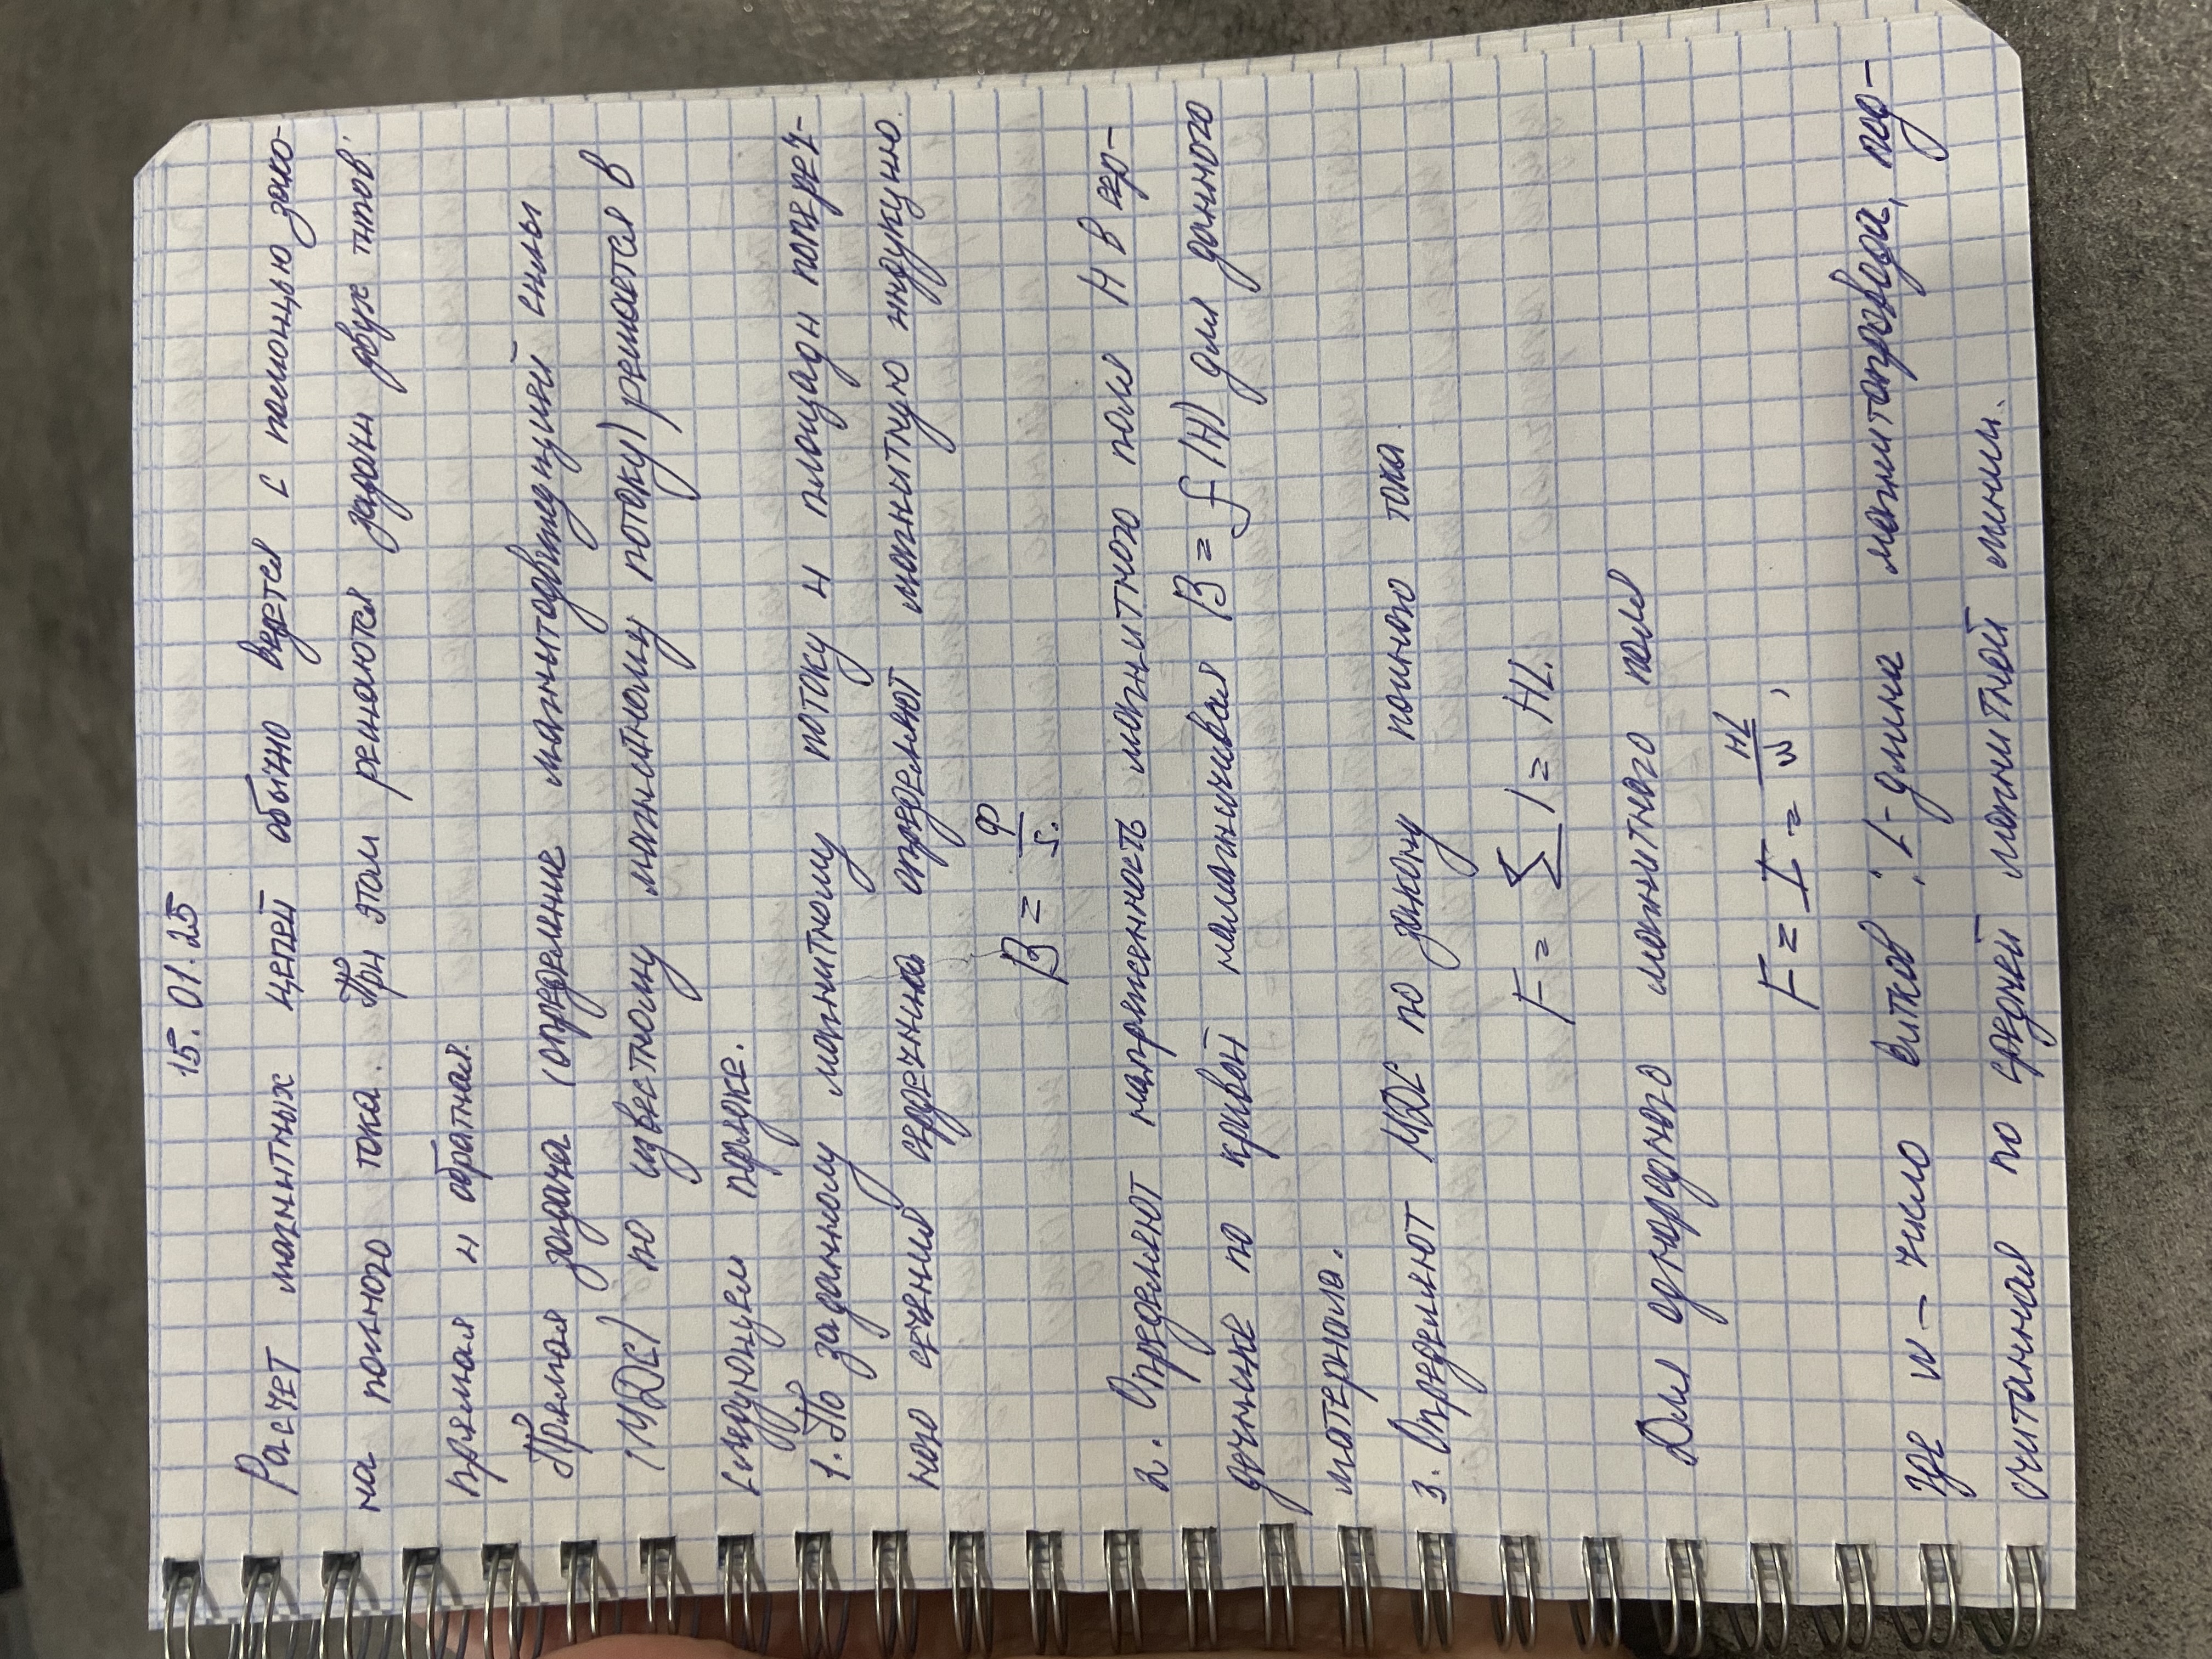 15.01.25
Расчет магнитных цепей обычно ведется с помощью зако-
на полного тока. При этом решаются задачи двух типов:
прямая и обратная.
Прямая задача (опредеение магнитодвижущей силы
(МДС) по известному магнитному потоку) решается в
следующем порядке.
1. По заданному магнитному потоку и площади попереч-
ного сечения сердечника определяют магнитную индукцию.
B = Ф/S.
2. Определяют напряженность магнитного поля H в сер-
дечнике по кривой намагничивая B = f(H) для данного
материала.
3. Определяют МДС по закону полного тока.
F = ∑ I = HL.
Для однородного магнитного поля
F = I = HL/w,
где w - число витков; L - длина магнитопровода, под-
считанная по средней магнитной линии.